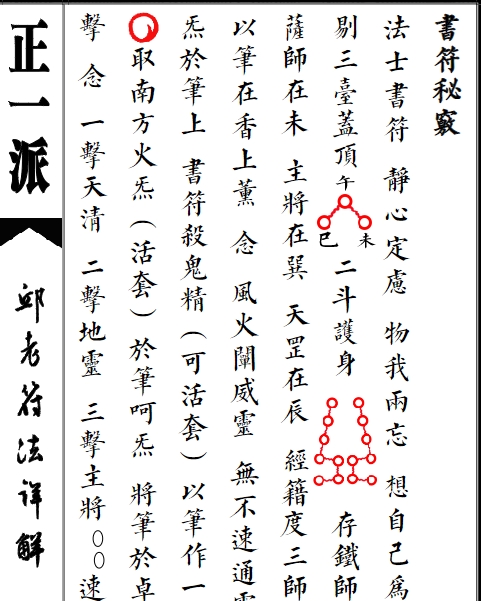 書符秘竅
法士書符 靜心定慮 物我兩忘 想自己為
剔三臺蓋頂 午 巳 未 二斗護身 存鐵師
薩師在未 主將在巽 天罡在辰 經籍度三師
以筆在香上薰 念 風火闡威靈 無不速通
炁於筆上 書符殺鬼精(可活套)以筆作一
取南方火炁(活套)於筆呵炁 將筆於卓
擊 念 一擊天清 二擊地靈 三擊主將○○速
正一派
邱老符法詳解